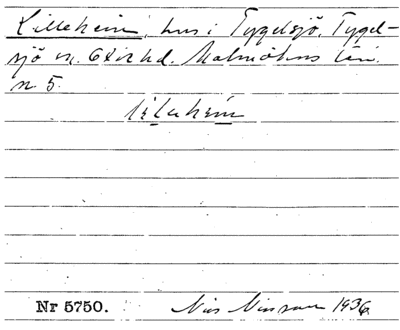 Lilleheim, hus i Tygelsjö, Tygel-
sjö sn. Oxie hd. Malmöhus län.
n 5.
lilaheim
Nr 5750. Nils Nilsson 1936